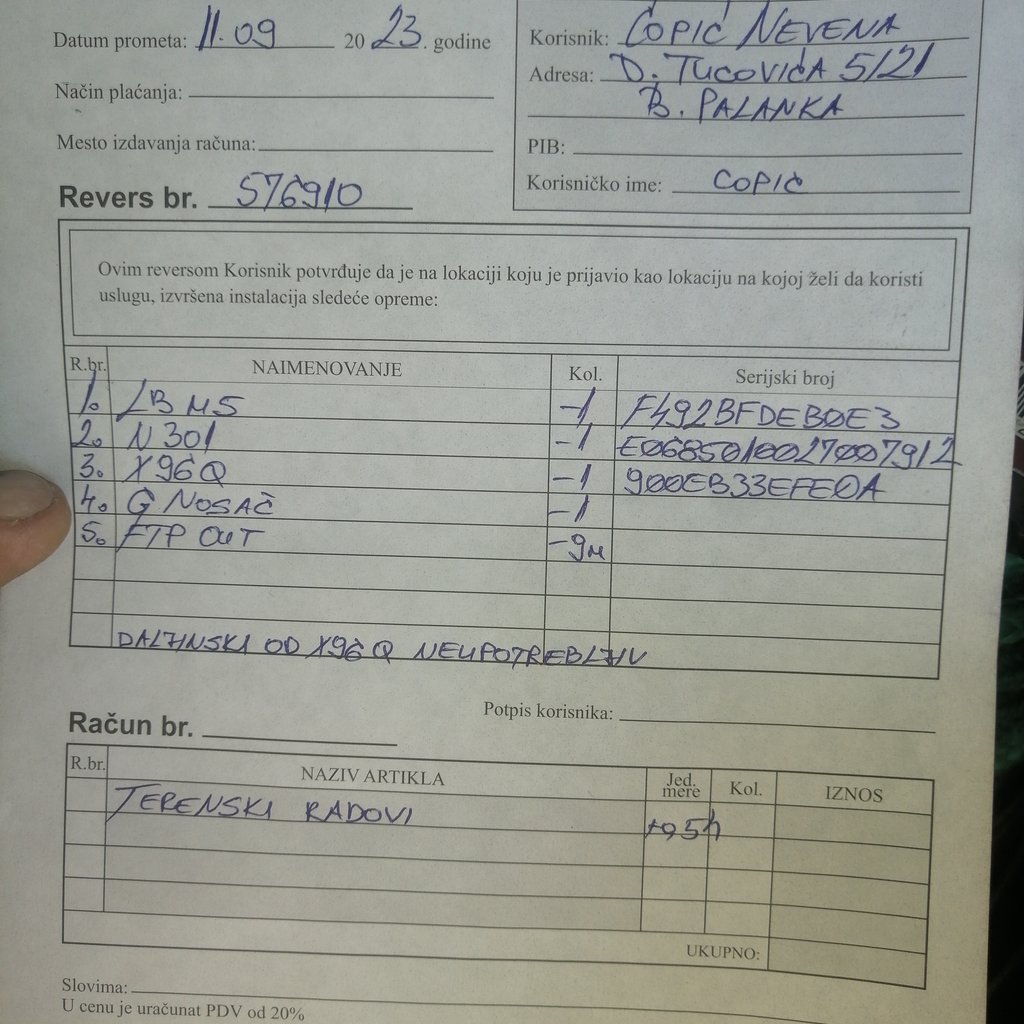 Datum prometa: 11.09 20 23. godine
Način plaćanja:
Mesto izdavanja računa:
Revers br. 576910
Korisnik: ĆOPIĆ NEVENA
Adresa: D. TUCOVIĆA 5/21
B. PALANKA
PIB:
Korisničko ime: COPIC
Ovim reversom Korisnik potvrđuje da je na lokaciji koju je prijavio kao lokaciju na kojoj želi da koristi
uslugu, izvršena instalacija sledeće opreme:
R.br. NAIMENOVANJE Kol. Serijski broj
1. LB M5 -1 F492BFDEB0E3
2. N301 -1 E0685010027007912
3. X96Q -1 900EB33EFE0A
4. G NOSAČ -1
5. FTP OUT -9m
DALJINSKI OD X96Q NEUPOTREBLJIV
Potpis korisnika:
Račun br.
R.br. NAZIV ARTIKLA Jed. mere Kol. IZNOS
TERENSKI RADOVI +0,5h
UKUPNO:
Slovima:
U cenu je uračunat PDV od 20%